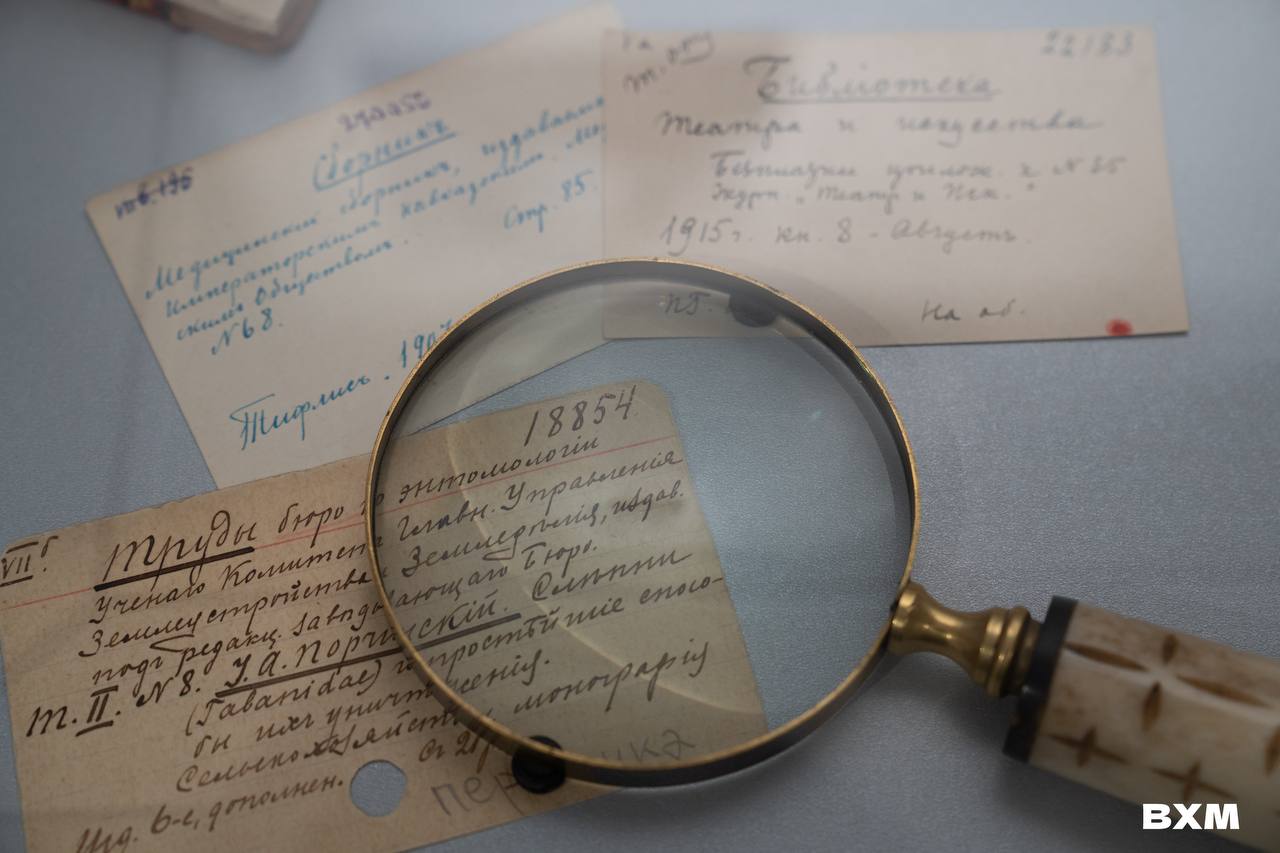 290455
Сборникъ
Медицинскій сборникъ, издаваемы
Императорскимъ Кавказскимъ Ме
скимъ Обществомъ. Стр. 85.
№ 68.
Тифлисъ. 1907
22133
Библіотека
Театра и искусства
Безплатн прилож. к № 35
Журн. „Театр и Иск."
1915 г. кн. 8 - Августъ.
На об.
18854
VII б.
Труды бюро по энтомологіи
Ученаго Комитета Главн. Управленія
Землеустройства Земледѣлія, издав.
подъ редакц. Завѣдывающаго Бюро.
Т. II. № 8. І. А. Порчинскій. Слѣпни
(Tabanidae) и простѣйшіе спосо-
бы ихъ уничтоженія.
Сельскохозяйств. монографія
Изд. 6-е, дополнен. Съ 28
BXM